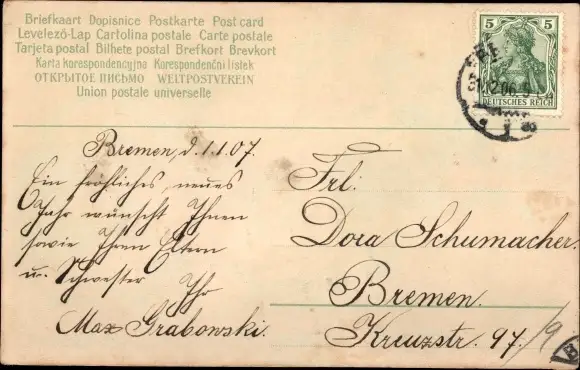 Briefkaart Dopisnice Postkarte Post card
Levelező-Lap Cartolina postale Carte postale
Tarjeta postal Bilhete postal Brefkort Brevkort
Karta korespondencyjna Korespondenční lístek
ОТКРЫТОЕ ПИСЬМО WELTPOSTVEREIN
Union postale universelle
5 5
DEUTSCHES REICH
31.12.06.5
Bremen, d. 1.1.07.
Ein fröhliches, neues
Jahr wünscht Ihnen
sowie Ihren Eltern
u. Schwester Ihr
Max Grabowski.
Frl:
Dora Schumacher.
Bremen.
Kreuzstr. 97./9